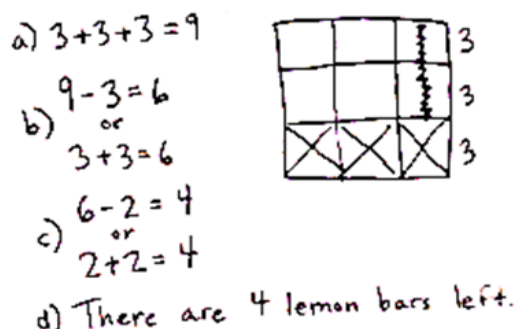 a) 3+3+3=9
9-3=6
b) or
3+3=6
6-2=4
c) or
2+2=4
d) There are 4 lemon bars left.
3
3
3